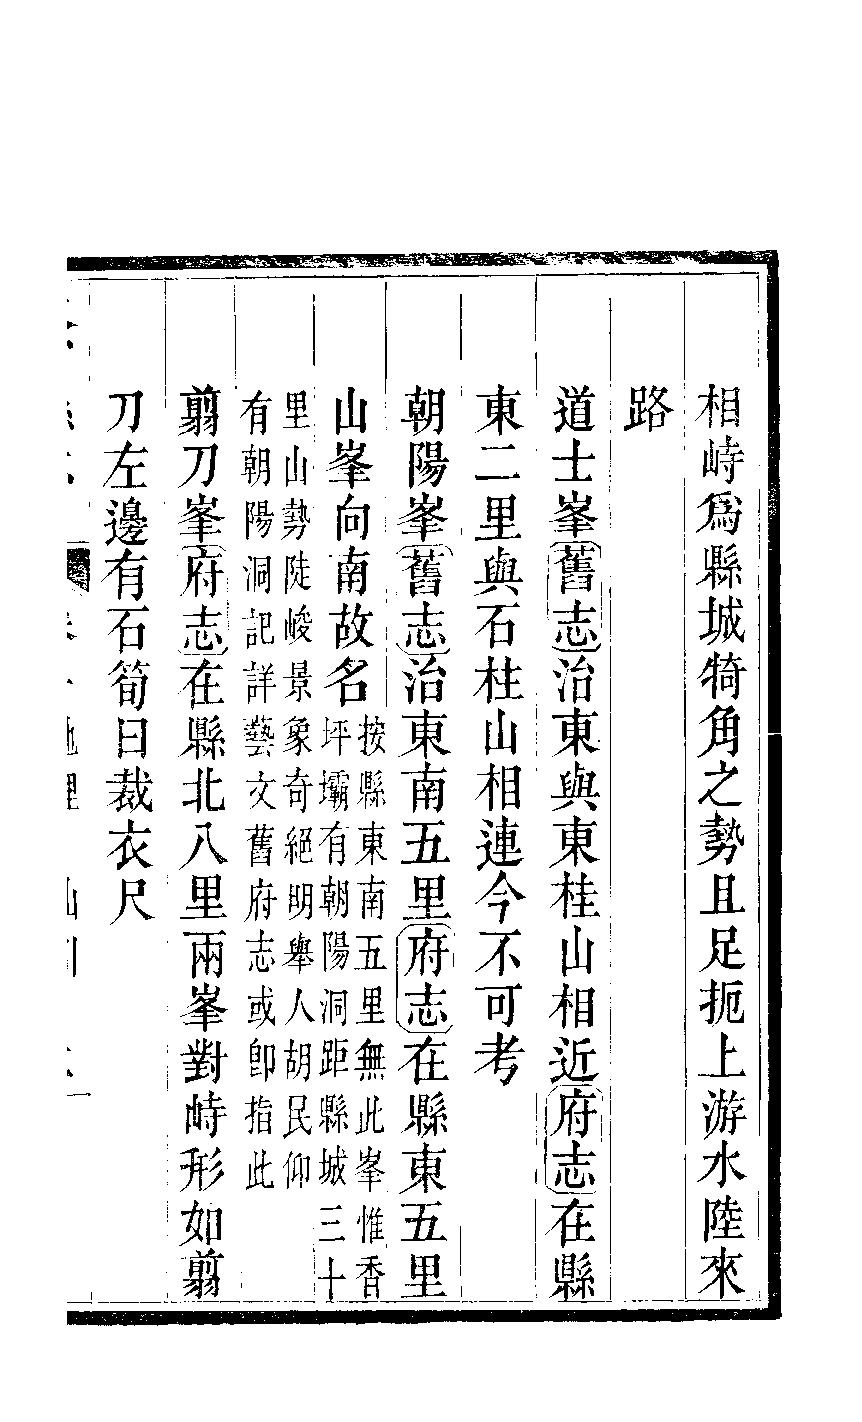 相峙爲縣城犄角之勢且足扼上游水陸來
路
道士峯舊志治東與東桂山相近府志在縣
東二里與石柱山相連今不可考
朝陽峯舊志治東南五里府志在縣東五里
山峯向南故名按縣東南五里無此峯惟香
坪壩有朝陽洞距縣城三十
里山勢陡峻景象奇絕明舉人胡民仰
有朝陽洞記詳藝文舊府志或卽指此
翦刀峯府志在縣北八里兩峯對峙形如翦
刀左邊有石筍曰裁衣尺
地理